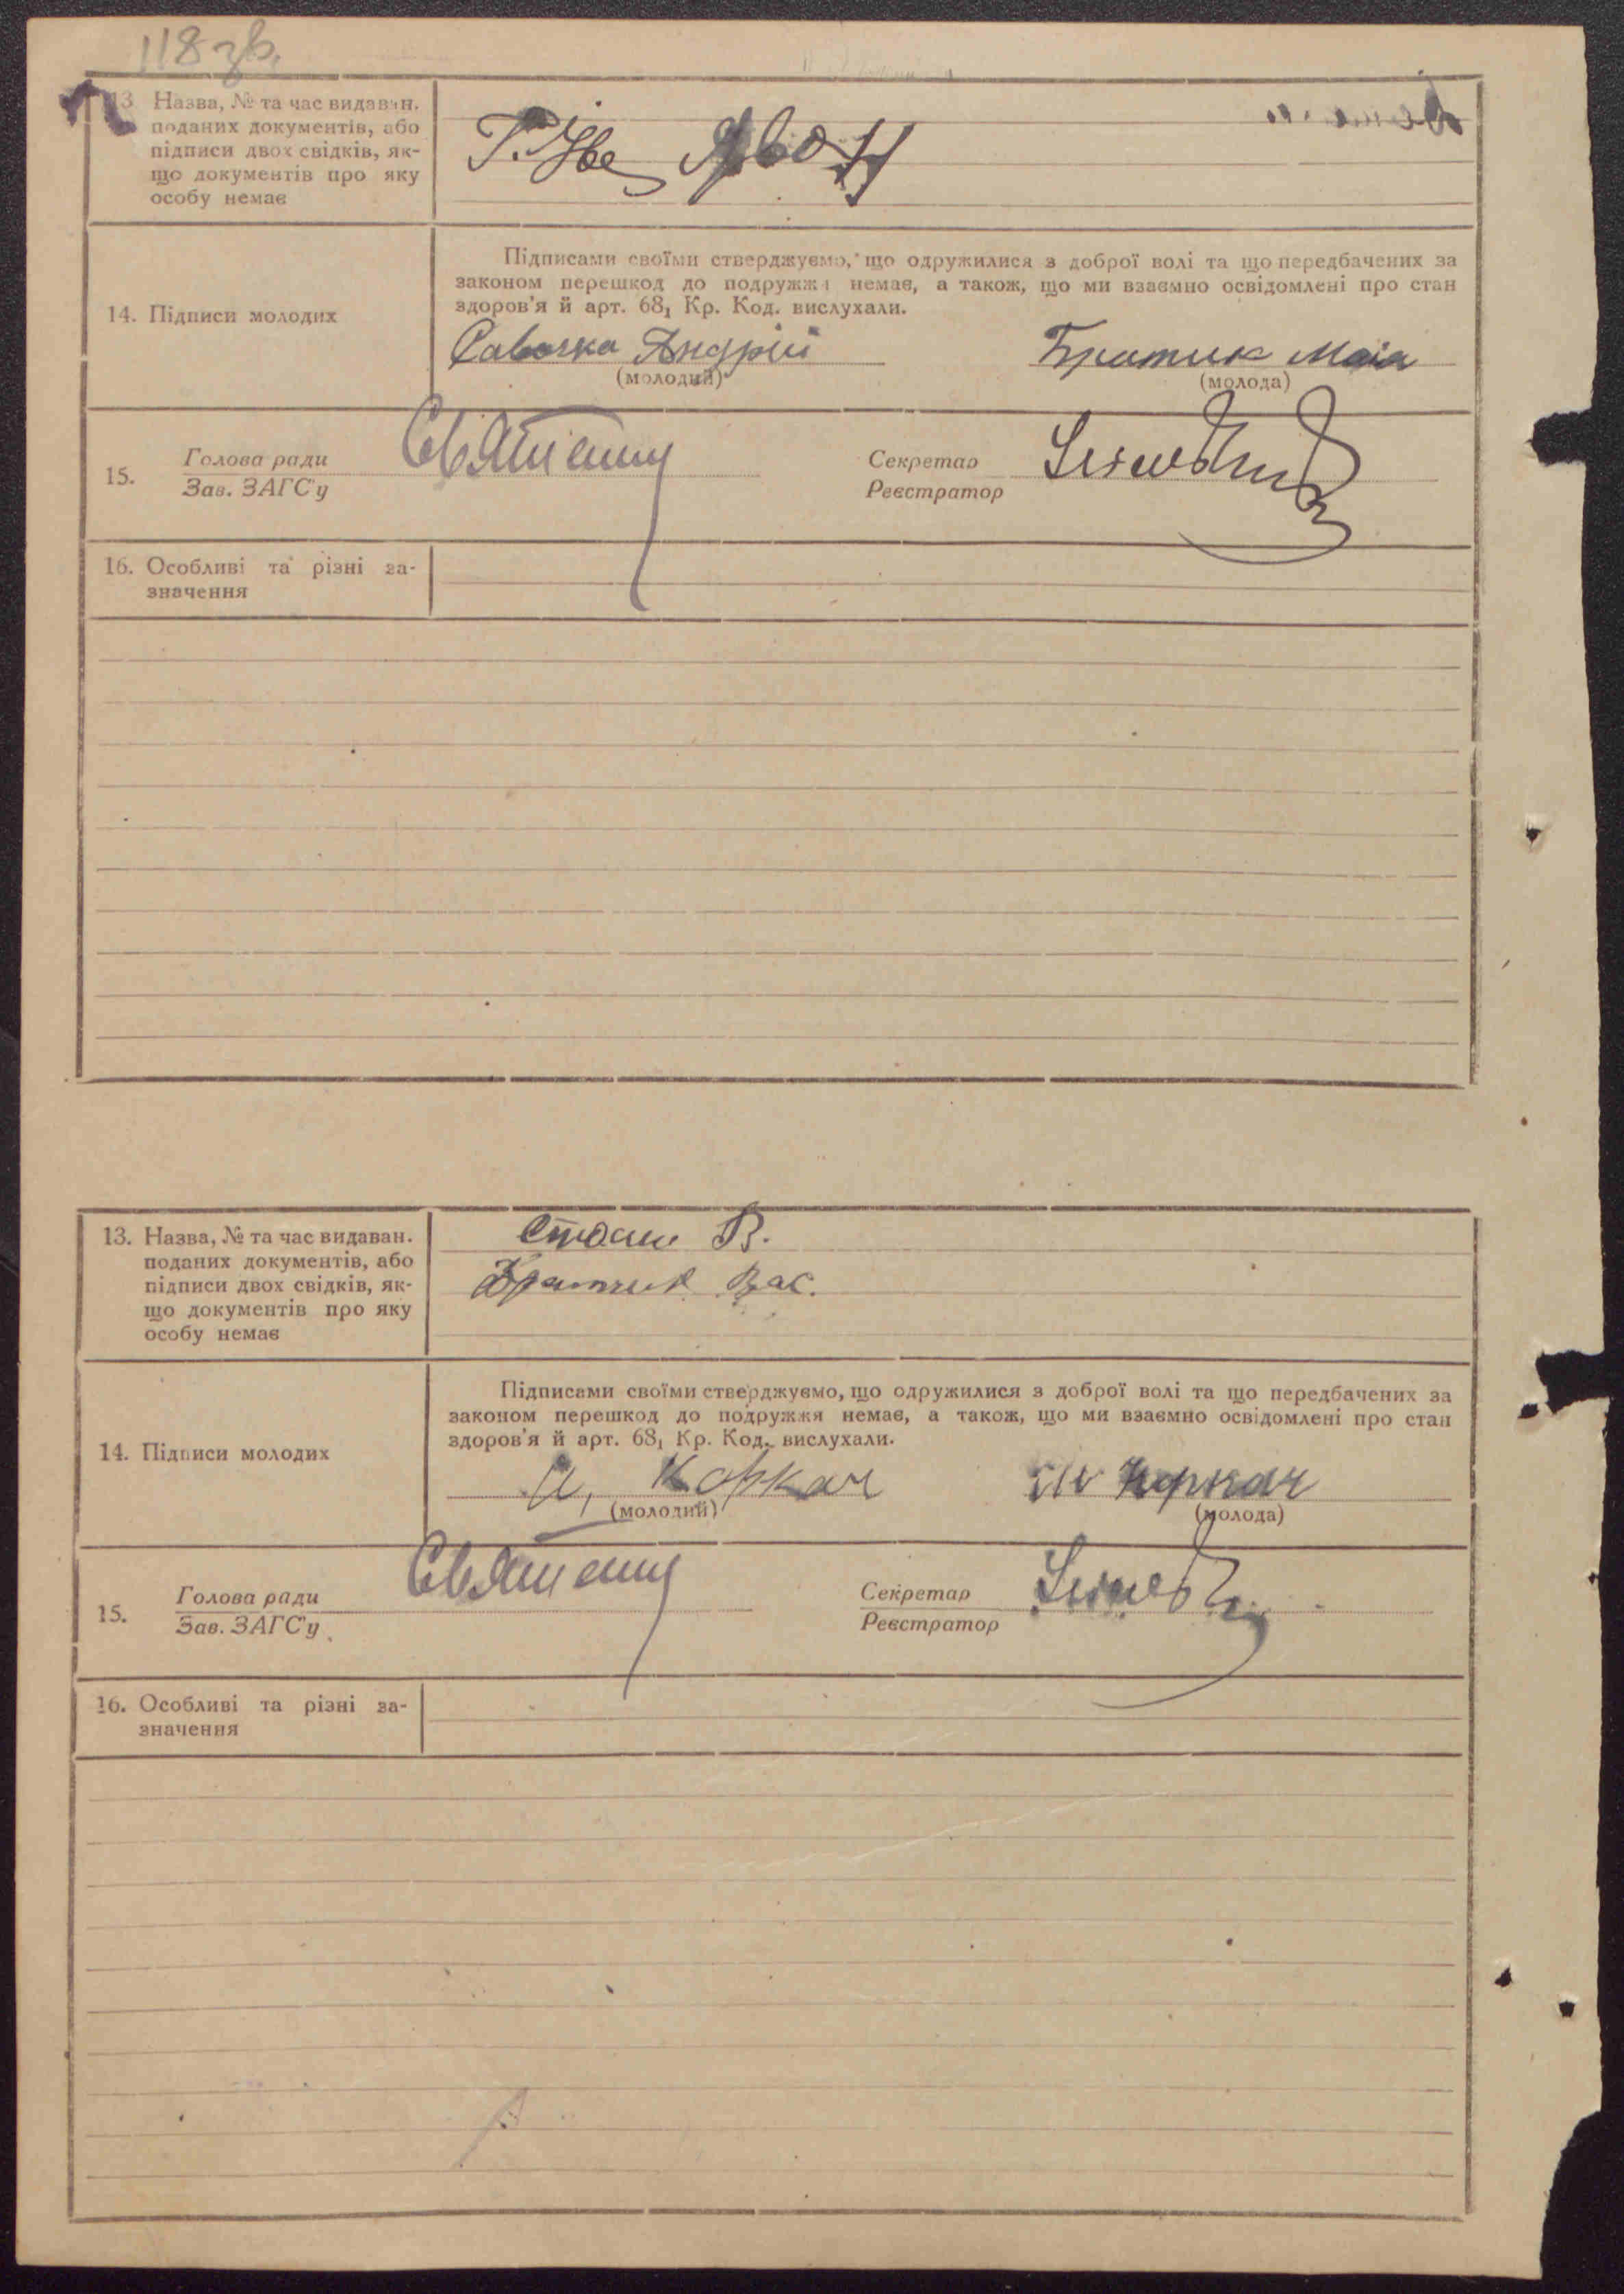 118 зв.
13. Назва, № та час видаван.
поданих документів, або
підписи двох свідків, як-
що документів про яку
особу немає
14. Підписи молодих
Підписами своїми стверджуємо, що одружилися з доброї волі та що передбачених за
законом перешкод до подружжя немає, а також, що ми взаємно освідомлені про стан
здоров'я й арт. 68₁ Кр. Код. вислухали.
Савочка Андрій
Братик Маія
(молодий)
(молода)
15.
Голова ради
Зав. ЗАГС'у
Секретар
Реєстратор
16. Особливі та різні за-
значення
13. Назва, № та час видаван.
поданих документів, або
підписи двох свідків, як-
що документів про яку
особу немає
В.
Вас.
14. Підписи молодих
Підписами своїми стверджуємо, що одружилися з доброї волі та що передбачених за
законом перешкод до подружжя немає, а також, що ми взаємно освідомлені про стан
здоров'я й арт. 68₁ Кр. Код. вислухали.
Коркач
Коркач
(молодий)
(молода)
15.
Голова ради
Зав. ЗАГС'у
Секретар
Реєстратор
16. Особливі та різні за-
значення